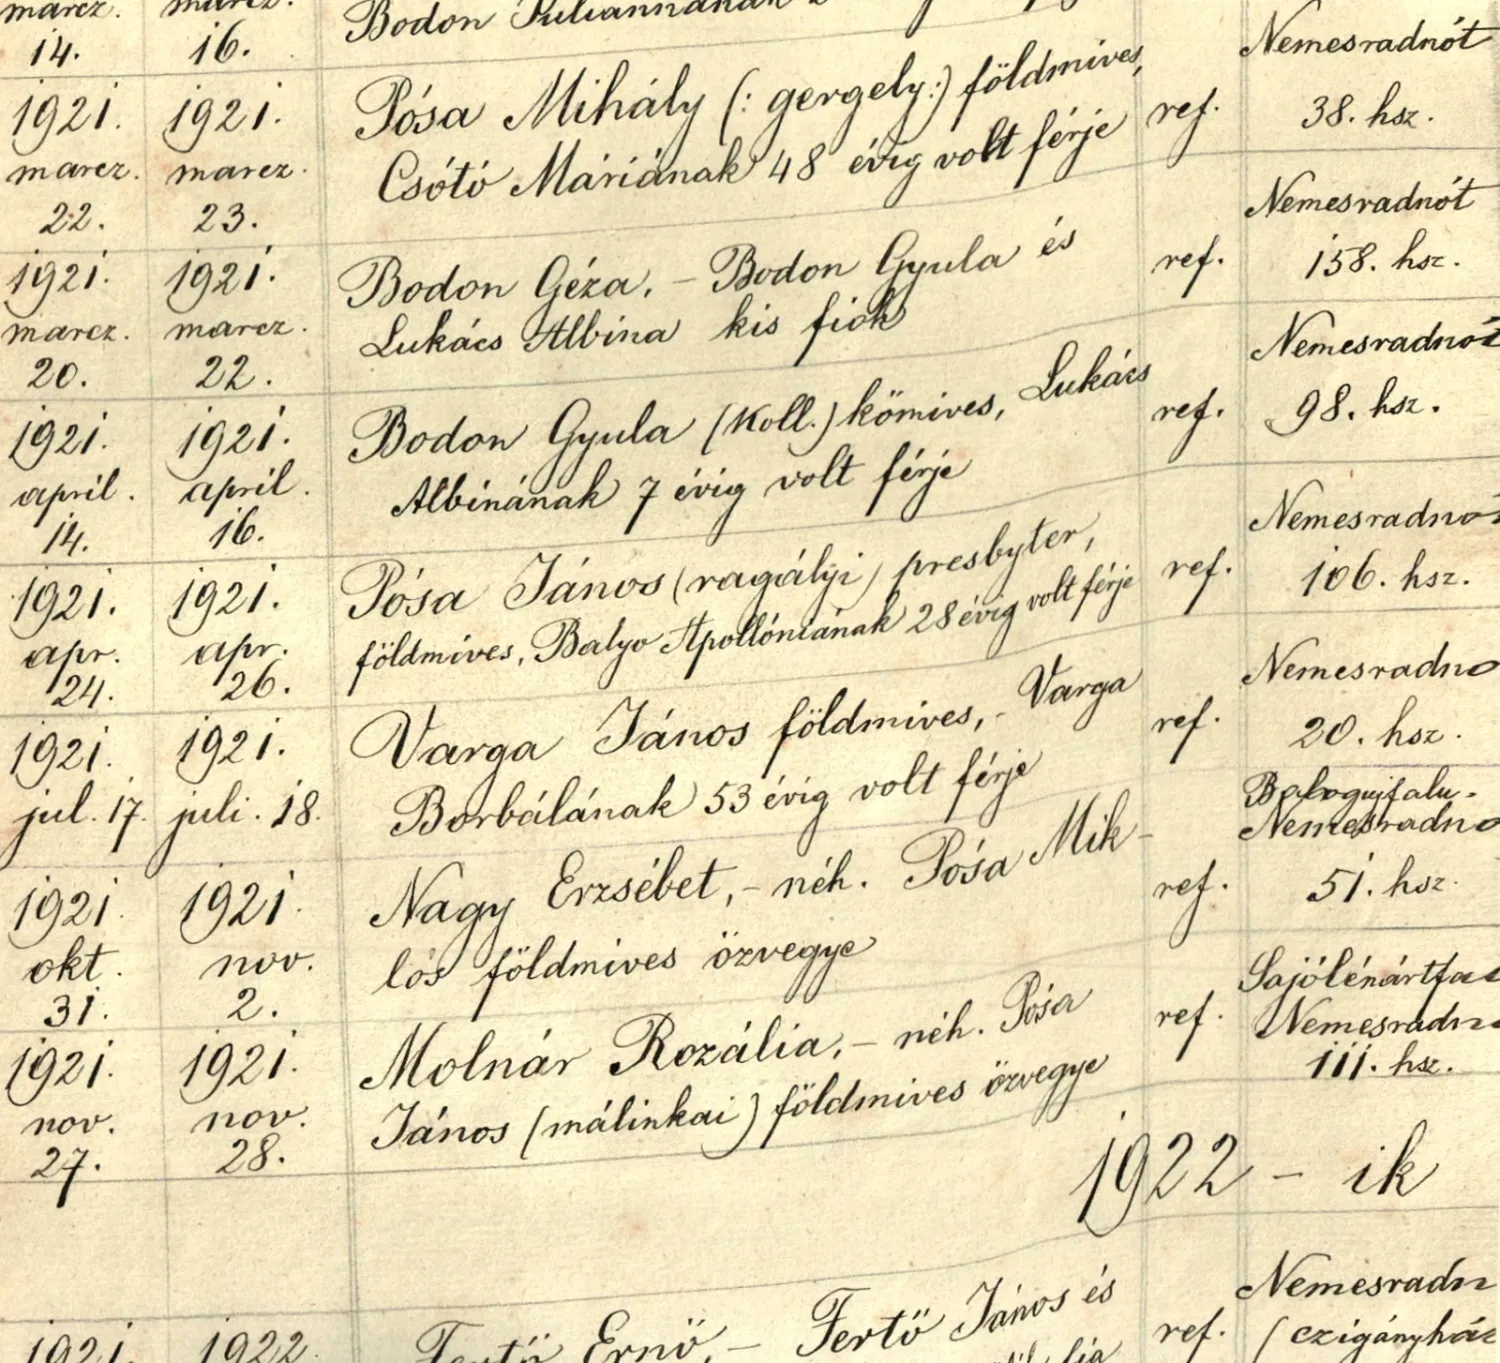 marcz. marcz.
14. 16. Bodon Juliannának Nemesradnót
1921. 1921. Pósa Mihály (: gergely:) földmives, ref. 38. hsz.
marcz. marcz. Csótó Máriának 48 évig volt férje
22. 23. Nemesradnót
1921. 1921. Bodon Géza, - Bodon Gyula és ref. 158. hsz.
marcz. marcz. Lukács Albina kis fiok
20. 22. Nemesradnót
1921. 1921. Bodon Gyula (Koll.) kömives, Lukács ref. 98. hsz.
april. april. Albinának 7 évig volt férje
14. 16. Nemesradnó
1921. 1921. Pósa János (ragályi) presbyter, ref. 106. hsz.
apr. apr. földmives, Balyo Apollóniának 28 évig volt férje
24. 26. Nemesradno
1921. 1921. Varga János földmives, - Varga ref. 20. hsz.
jul. 17. juli. 18. Borbálának 53 évig volt férje Balogujfalu.
Nemesradno
1921. 1921. Nagy Erzsébet, - néh. Pósa Mik- ref. 51. hsz.
okt. nov. lós földmives özvegye
31. 2. Sajólénártfa
1921. 1921. Molnár Rozália, - néh. Pósa ref. Nemesradn
nov. nov. János (málinkai) földmives özvegye 111. hsz.
27. 28.
1922 - ik
Nemesradn
1921. 1922. Fertö Ernö, - Fertö János és ref. (czigányház